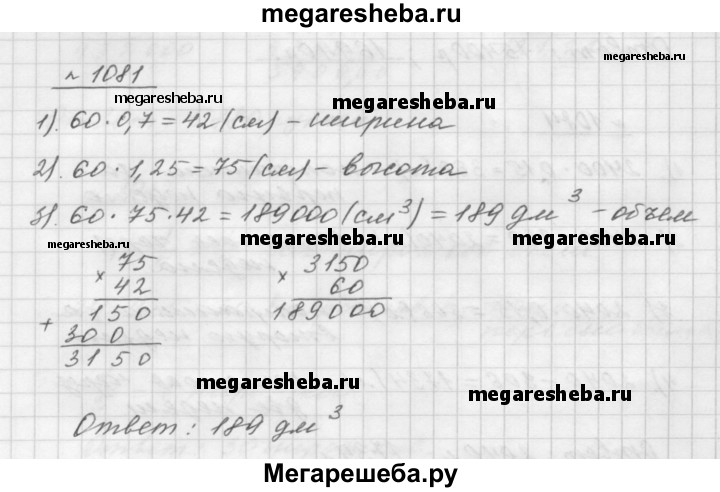 megaresheba.ru
№ 1081
megaresheba.ru
megaresheba.ru megaresheba.ru
1). 60 · 0,7 = 42 (см) - ширина
2). 60 · 1,25 = 75 (см) - высота
3). 60 · 75 · 42 = 189000 (см³) = 189 дм³ - объем
megaresheba.ru megaresheba.ru megaresheba.ru
× 75 × 3150
42 60
150 189000
+ 300
3150
megaresheba.ru megaresheba.ru
Ответ: 189 дм³
Мегарешеба.ру